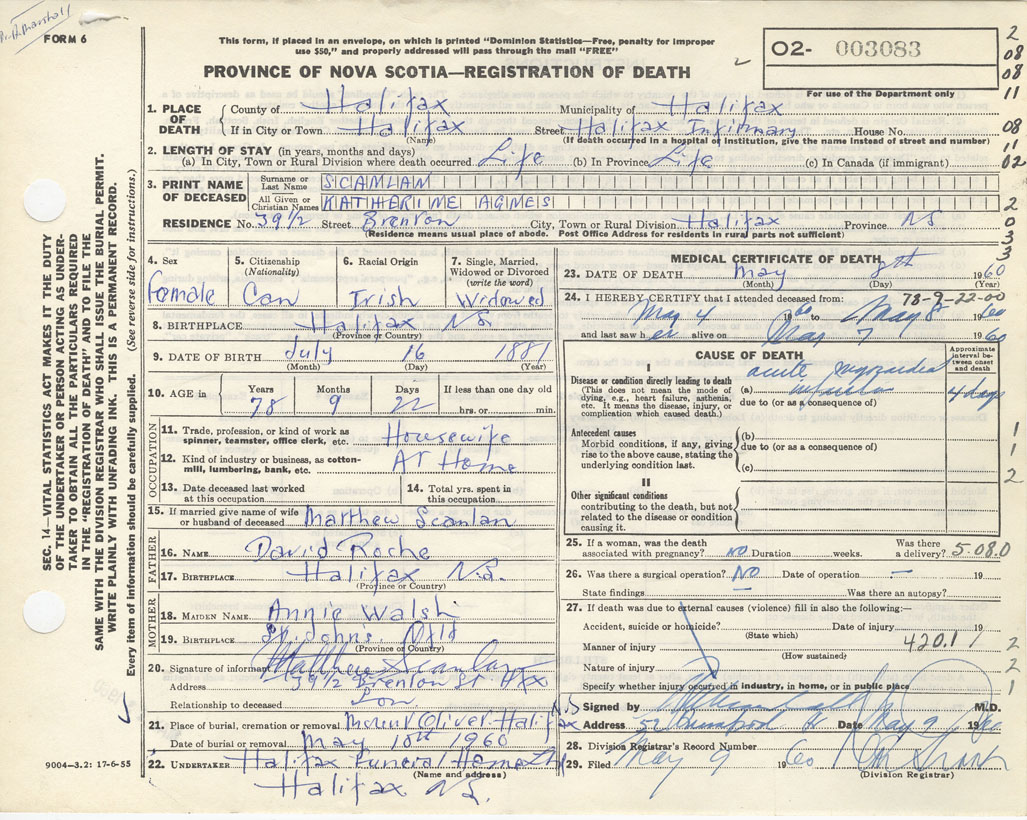 FORM 6
This form, if placed in an envelope, on which is printed "Dominion Statistics—Free, penalty for improper
use $50," and properly addressed will pass through the mail "FREE"
PROVINCE OF NOVA SCOTIA—REGISTRATION OF DEATH
02- 003083
For use of the Department only
2
08
08
11
08
11
02
2
0
3
3
SEC. 14—VITAL STATISTICS ACT MAKES IT THE DUTY
OF THE UNDERTAKER OR PERSON ACTING AS UNDER-
TAKER TO OBTAIN ALL THE PARTICULARS REQUIRED
IN THE "REGISTRATION OF DEATH" AND TO FILE THE
SAME WITH THE DIVISION REGISTRAR WHO SHALL ISSUE THE BURIAL PERMIT.
WRITE PLAINLY WITH UNFADING INK. THIS IS A PERMANENT RECORD.
Every item of information should be carefully supplied. (See reverse side for instructions.)
1. PLACE OF DEATH
County of Halifax Municipality of Halifax
If in City or Town Halifax Street Halifax Infirmary House No.
(Name) (If death occurred in a hospital or institution, give the name instead of street and number)
2. LENGTH OF STAY (in years, months and days)
(a) In City, Town or Rural Division where death occurred Life (b) In Province Life (c) In Canada (if immigrant)
3. PRINT NAME OF DECEASED
Surname or Last Name SCANLAN
All Given or Christian Names KATHERINE AGNES
RESIDENCE No. 39 1/2 Street Brenton City, Town or Rural Division Halifax Province NS
(Residence means usual place of abode. Post Office Address for residents in rural parts not sufficient)
4. Sex
Female
5. Citizenship
(Nationality)
Can
6. Racial Origin
Irish
7. Single, Married,
Widowed or Divorced
(write the word)
Widowed
8. BIRTHPLACE Halifax N.S.
(Province or Country)
9. DATE OF BIRTH July 16 1881
(Month) (Day) (Year)
10. AGE in
Years Months Days If less than one day old
78 9 22 hrs. or min.
OCCUPATION
11. Trade, profession, or kind of work as
spinner, teamster, office clerk, etc. Housewife
12. Kind of industry or business, as cotton-
mill, lumbering, bank, etc. At Home
13. Date deceased last worked
at this occupation
14. Total yrs. spent in
this occupation
15. If married give name of wife
or husband of deceased Matthew Scanlan
FATHER
16. NAME David Roche
17. BIRTHPLACE Halifax N.S.
(Province or Country)
MOTHER
18. MAIDEN NAME Annie Walsh
19. BIRTHPLACE St. John's. Nfld
(Province or Country)
20. Signature of informant Matthew Scanlan
Address 39 1/2 Brenton St Hfx N.S
Relationship to deceased Son
21. Place of burial, cremation or removal Mount Oliver. Halifax
Date of burial or removal May 10th 1960
22. UNDERTAKER Halifax Funeral Home
(Name and address)
Halifax N.S.
9004—3.2: 17-6-55
MEDICAL CERTIFICATE OF DEATH
23. DATE OF DEATH May 8th 1960
(Month) (Day) (Year)
78-9-22-00
24. I HEREBY CERTIFY that I attended deceased from:
May 4 1960 to May 8 1960
and last saw her alive on May 7 1960
CAUSE OF DEATH
Approximate
interval be-
tween onset
and death
I
Disease or condition directly leading to death
(This does not mean the mode of
dying, e.g., heart failure, asthenia,
etc. It means the disease, injury, or
complication which caused death.)
acute myocardial
(a) infarction 4 days
due to (or as a consequence of)
Antecedent causes
Morbid conditions, if any, giving
rise to the above cause, stating the
underlying condition last.
(b)
due to (or as a consequence of)
(c)
II
Other significant conditions
contributing to the death, but not
related to the disease or condition
causing it.
1
1
2
25. If a woman, was the death
associated with pregnancy? NO Duration weeks. Was there
a delivery? 5.08.0
26. Was there a surgical operation? NO Date of operation — 19
State findings — Was there an autopsy?
27. If death was due to external causes (violence) fill in also the following:—
Accident, suicide or homicide? Date of injury 19
(State which)
Manner of injury 420.1
(How sustained)
Nature of injury
Specify whether injury occurred in industry, in home, or in public place
2
2
1
Signed by M.D.
Address St Date May 9 1960
28. Division Registrar's Record Number
29. Filed May 9 1960
(Division Registrar)